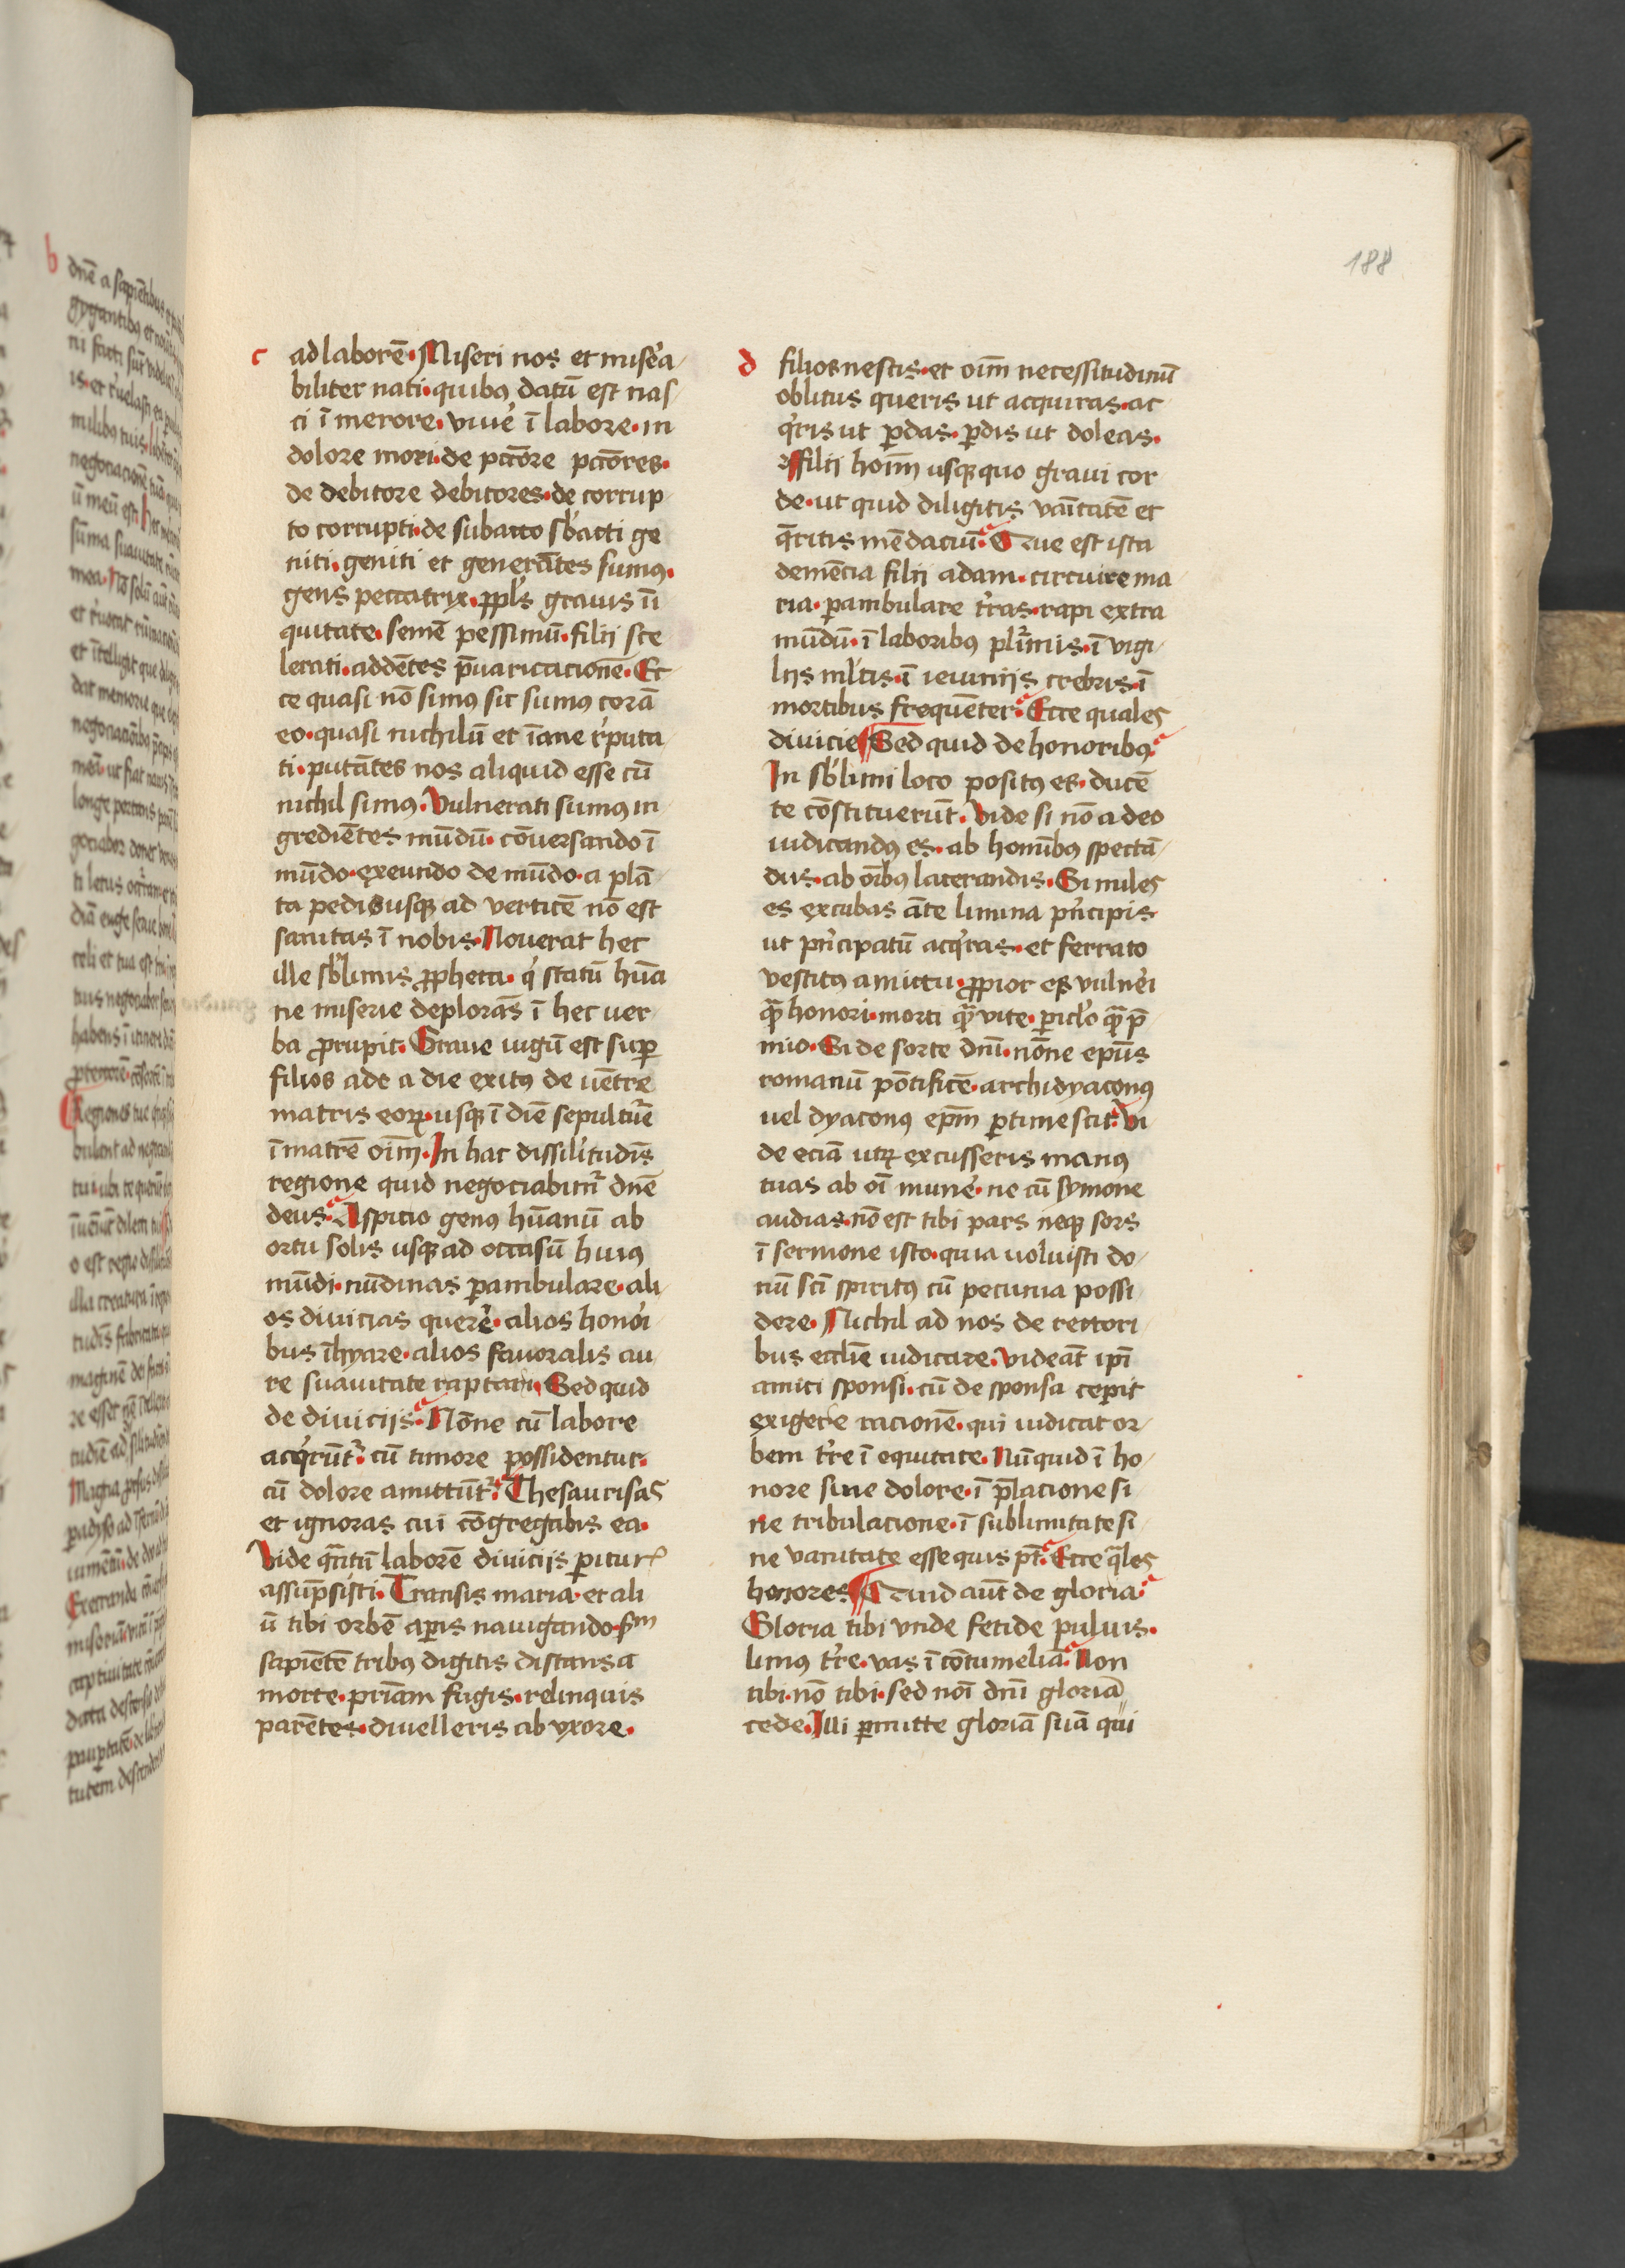 188
c
ad laborē. Miseri nos et miẜa
biliter nati. quibꝰ datū est nas
ci ī merore. viue᷑ ī labore. in
dolore mori. de pctōre pctōres.
de debitore debitores. de corrup
to corrupti. de subacto sb᷑acti ge
niti. geniti et generātes sumꝰ.
gens peccatrix. ꝓpl's grauis ī
quitate. semē pessimū. filij sce
lerati. addētes p̄uaricacionē. Ec
ce quasi nō simꝰ sic sumꝰ corā
eo. quasi nichilū et īane r᷑puta
ti. putātes nos aliquid esse cū
nichil simꝰ. Vulnerati sumꝰ in
grediētes mūdū. cōuersando ī
mūdo. exeundo de mūdo. a plā
ta pedis usqꝫ ad verticē nō est
sanitas ī nobis. Nouerat hec
ille sb᷑limis ꝓpheta. q' statū hūa
ne miserie deplorās ī hec uer
ba ꝓrupit. Graue iugū est suꝑ
filios ade a die exitꝰ de uētre
matris eoꝝ. usqꝫ ī diē sepultur᷑e
ī matrē oīm. In hac dissil'itudīs
regione quid negociabim᷑ dnē
deus. Aspicio genꝰ hūanū ab
ortu solis usqꝫ ad occasū huiꝰ
mūdi. nūdinas ꝑambulare. ali
os diuicias quere᷑. alios hono᷑i
bus īhyare. alios fauoralis au
re suauitate raptari. Sed quid
de diuicijs. Nōne cū labore
acq'rūt᷑. cū timore possidentur.
cū dolore amittūt᷑. Thesaurisas
et ignoras cui cōgregabis ea.
Vide quātū laborē diuicijs ꝑitur᷑
assūpsisti. Transis maria. et ali
ū tibi orbē aꝑis nauigando. sm
sapiētē tribꝰ digitis distans a
morte. priam fugis. relinquis
parētes. diuelleris ab vxore.
d
filios nescis. et oīm necessitudinū
oblitus queris ut acquiras. ac
q'ris ut ꝑdas. ꝑdis ut doleas.
filij hoīm usqꝫ quo graui cor
de. ut quid diligitis vāitatē et
q̄ritis mēdaciū. Que est ista
demēcia filij adam. circuire ma
ria. ꝑambulare t᷑ras. rapi extra
mūdū. ī laboribꝰ pl᷑imis. ī vigi
lijs ml'tis. ī ieiunijs crebris. ī
mortibus frequēter. Ecce quales
diuicie Sed quid de honoribꝰ.
In sb᷑limi loco positꝰ es. ducē
te cōstituerūt. Vide si nō a deo
iudicandꝰ es. ab hoībꝰ spectā
dus. ab oībꝰ lacerandis. Si miles
es excubas āte limina pn᷑cipis
ut pn᷑cipatū acq'ras. et ferrato
vestitꝰ amictu. ꝓpior es vulne᷑i
qꝫ̄ honori. morti qꝫ̄ vite. ꝑicl'o qꝫ̄ p̄
mio. Si de sorte dnī. nōne epūs
romanū pōtificē. archidyaconꝰ
uel dyaconꝰ ep̄m ꝑtimescit. Vi
de eciā utꝝ excusseris manꝰ
tuas ab oī mune᷑. ne cū symone
audias. nō est tibi pars neqꝫ sors
ī sermone isto. quia uoluisti do
nū scī spiritꝰ cū pecunia possi
dere. Nichil ad nos de rectori
bus ecclīe iudicare. videāt ipī
amici sponsi. cū de sponsa ceꝑit
exigere racionē. qui iudicat or
bem t᷑re ī equitate. Nūquid ī ho
nore sine dolore. ī p̄lacione si
ne tribulacione. ī sublimitate si
ne vanitate esse quis pt̄. Ecce q̄les
honores Quid aūt de gloria.
Gloria tibi vnde fetide puluis.
limꝰ t᷑re. vas ī cōtumeliā. Non
tibi. nō tibi. sed noī dnī gloriā
cede. Illi ꝑmitte gloriā suā qui